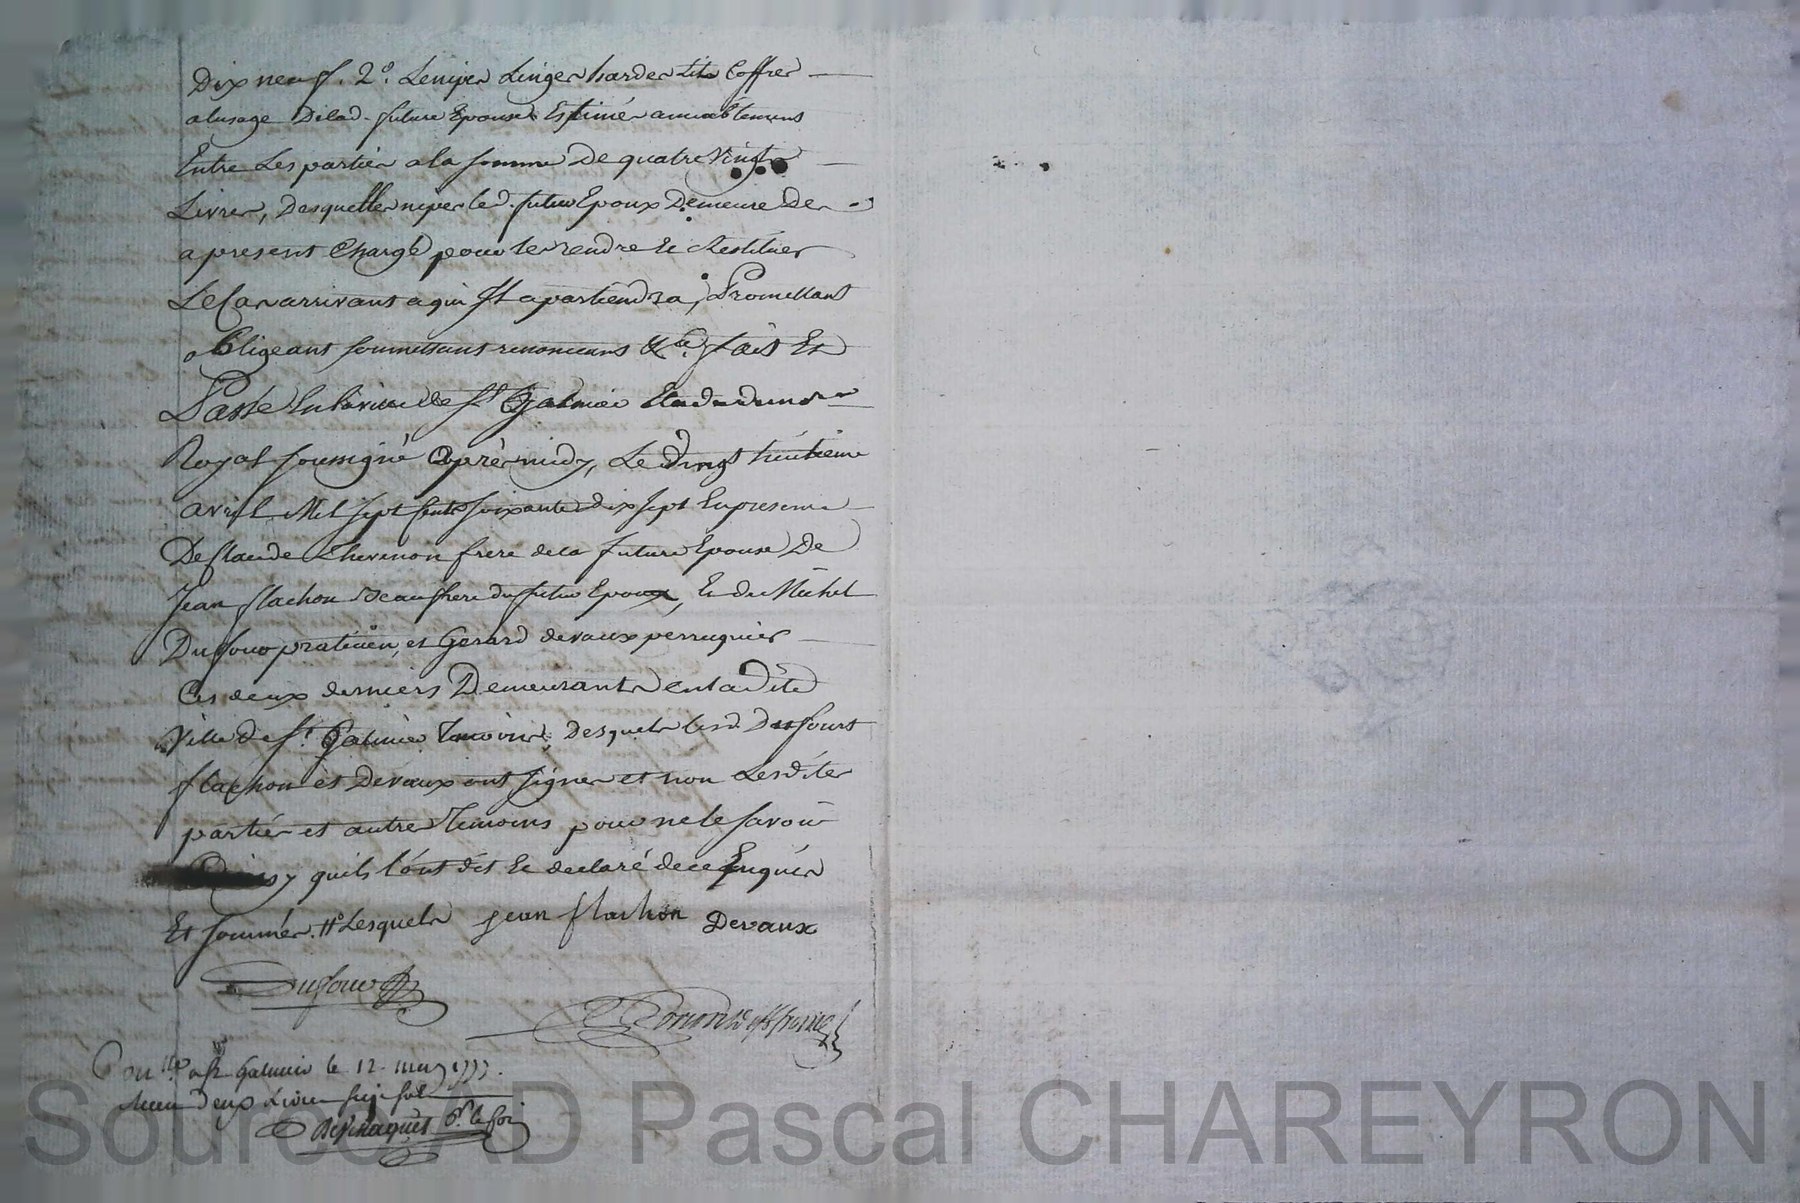 Dix neuf. 2°. Leniper Linger harder Lits Coffrer
alusage Delad. future Epouse Estimér amiablemens
Entre Les partiér ala somme De quatre Vingts
Livrer, Desqueller niper led. futur Epoux Demeure Der
apresent Chargé pour ler rendre Et Restituer
Le Car arrivant aqui Il apartiendra, Promettant
obligeant soumettant renonceant &ca. fait Et
Passé En la ville de St. Galmier
Royal soussigné aprèr midy, Le Vingt huitieme
avril Mil sept Cents soixante dix sept En presence
De Claude Thevenon frere dela future Epouse De
Jean flachon Beaufrere du futur Epoux, Et de Michel
Dufour praticien, et Gerard devaux perruquier
Ces deux derniers Demeurants en ladite
Ville de St. Galmier temoins, Desquels lesd. Dufours
flachon et Devaux ont signer et non Lesditer
partiér et autre Temoins pour ne le savoir
quils l'ont dit Et declaré de ce Enquiér
Et sommér. Lesquels jean flachon Devaux
Dufour
Con.lé a St. Galmier le 12. may 1777.
Receu deux Livres six sols